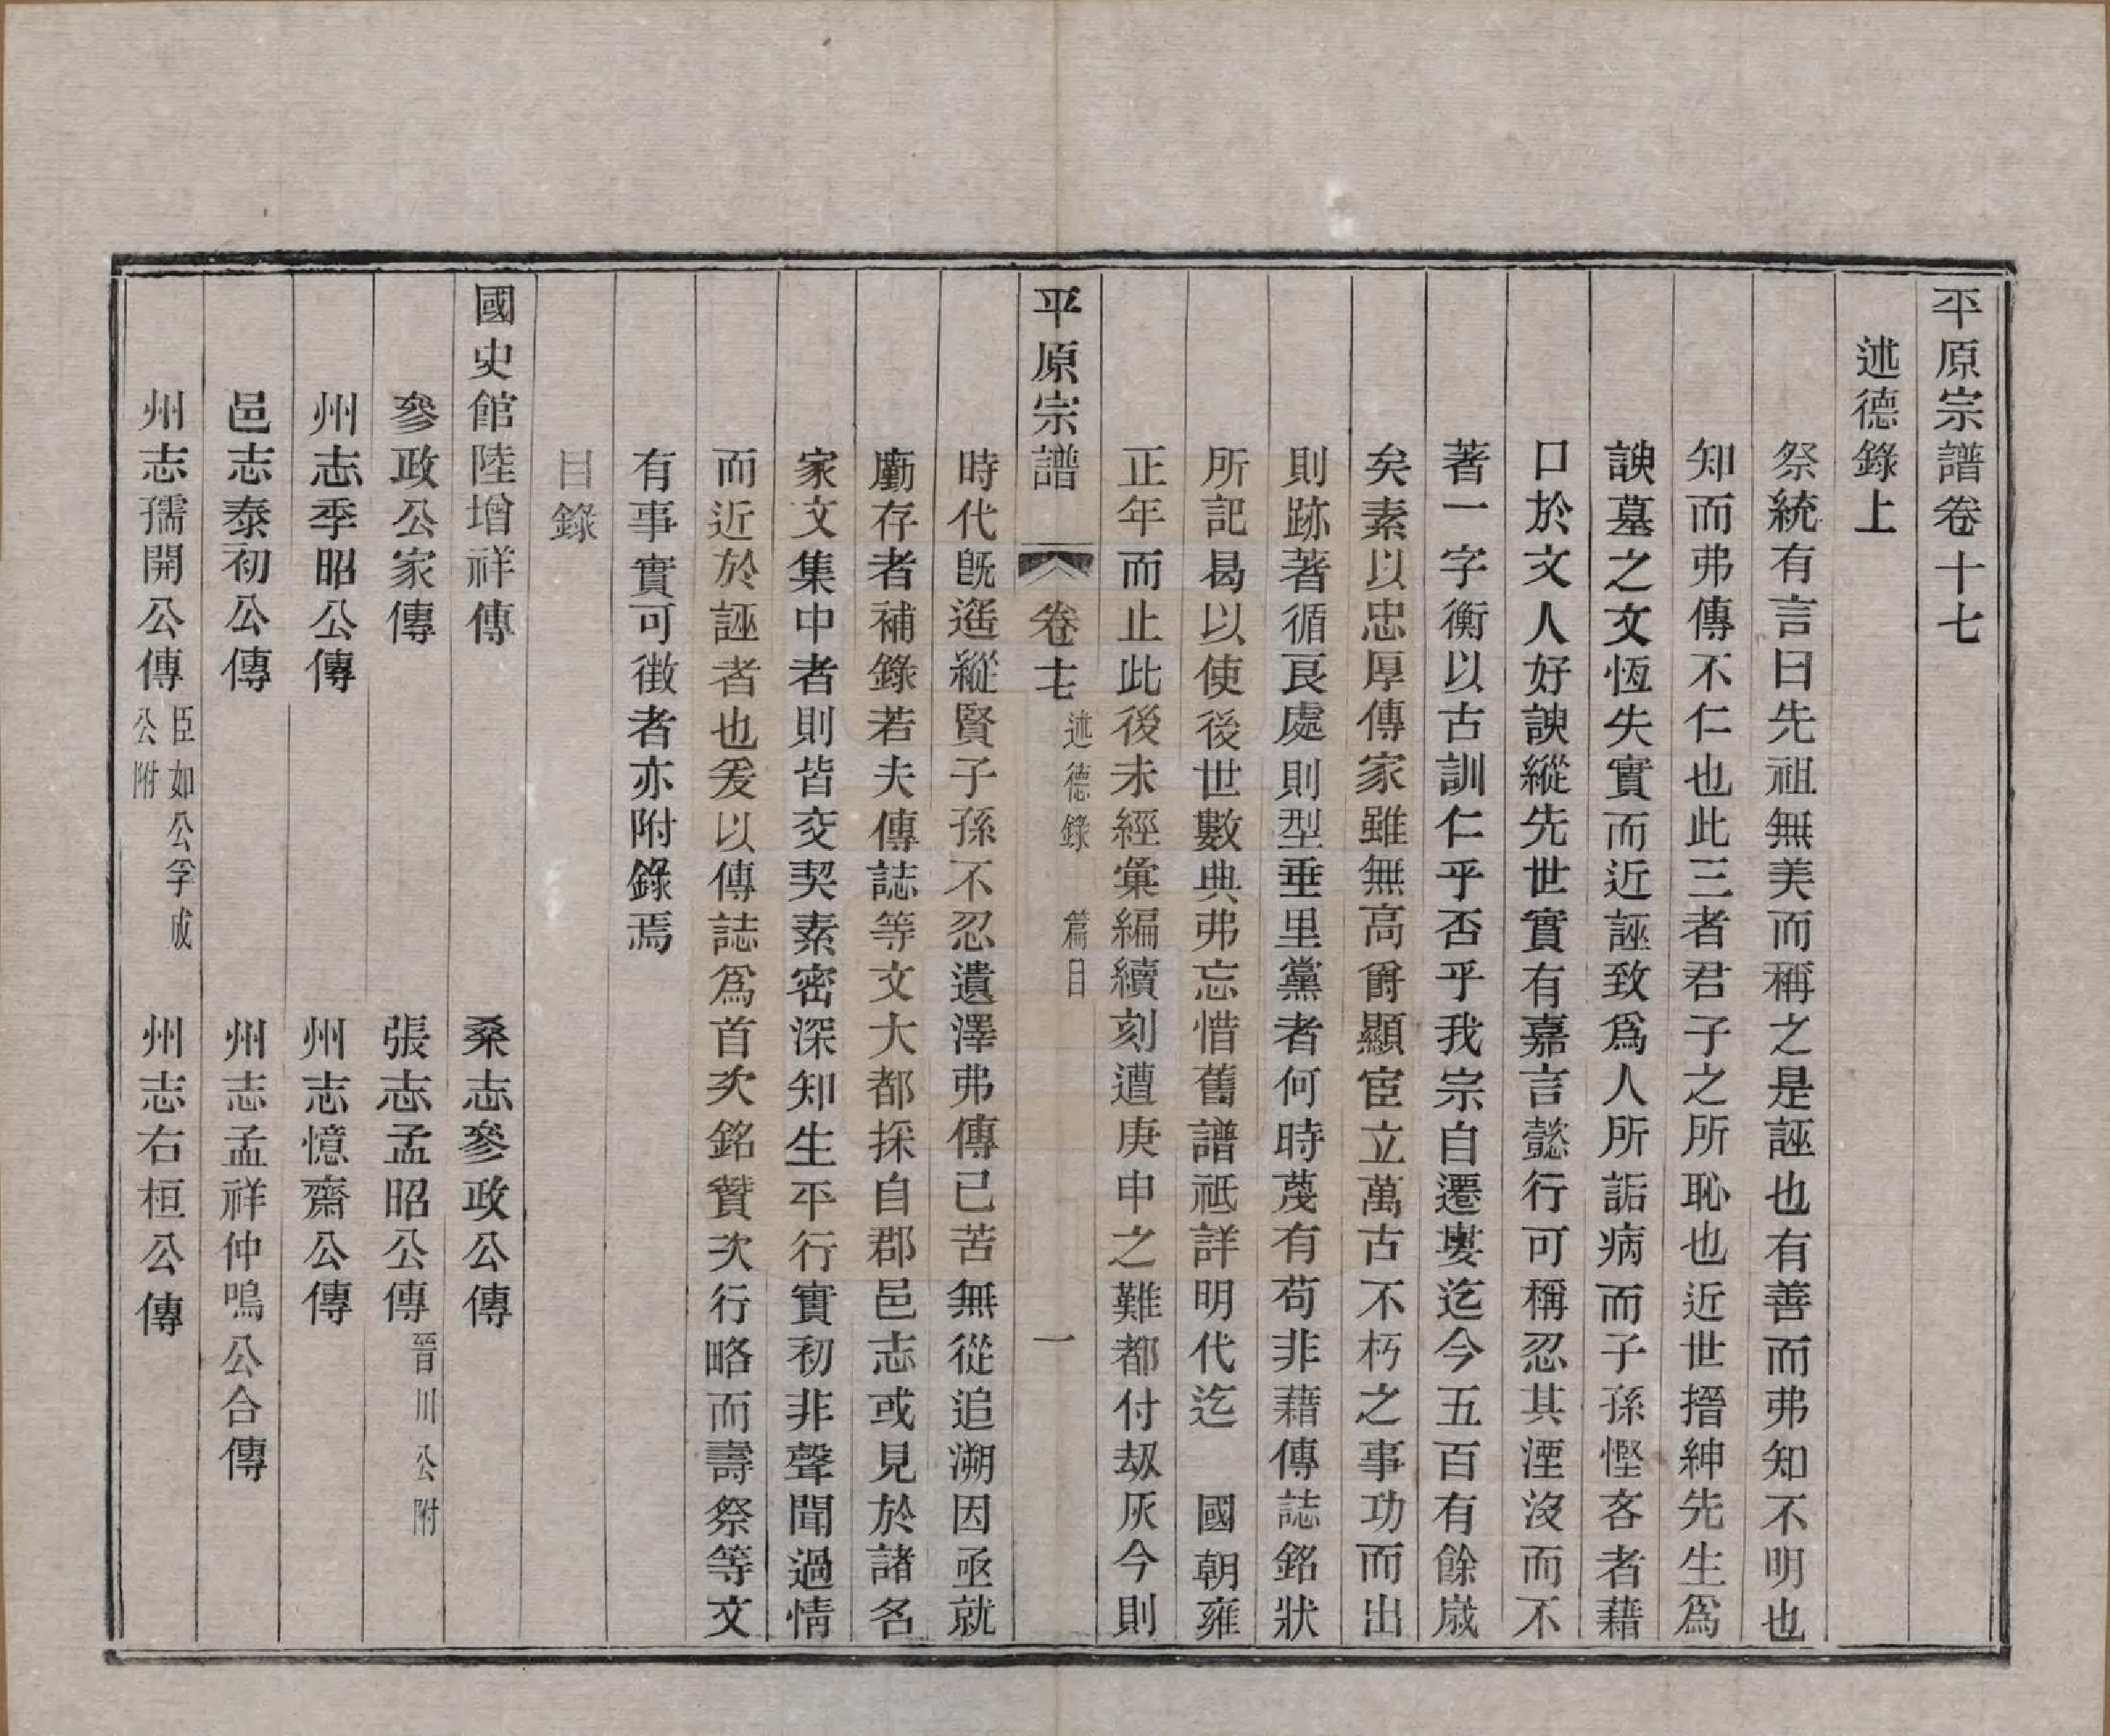 平原宗譜卷十七
述德錄上
祭統有言曰先祖無美而稱之是誣也有善而弗知不明也
知而弗傳不仁也此三者君子之所恥也近世搢紳先生爲
諛墓之文恆失實而近誣致爲人所詬病而子孫慳吝者藉
口於文人好諛縱先世實有嘉言懿行可稱忍其湮沒而不
著一字衡以古訓仁乎否乎我宗自遷婁迄今五百有餘歲
矣素以忠厚傳家雖無高爵顯宦立萬古不朽之事功而出
則跡著循良處則型垂里黨者何時蔑有苟非藉傳誌銘狀
所記曷以使後世數典弗忘惜舊譜祗詳明代迄 國朝雍
正年而止此後未經彙編續刻遭庚申之難都付刼灰今則
平原宗譜 卷十七 述德錄 篇目 一
時代旣遥縱賢子孫不忍遺澤弗傳已苦無從追溯因亟就
廟存者補錄若夫傳誌等文大都採自郡邑志或見於諸名
家文集中者則皆交契素密深知生平行實初非聲聞過情
而近於誣者也爰以傳誌爲首次銘贊次行略而壽祭等文
有事實可徴者亦附錄焉
目錄
國史館陸增祥傳 桑志參政公傳
參政公家傳 張志孟昭公傳 晉川公附
州志季昭公傳 州志憶齋公傳
邑志泰初公傳 州志孟祥仲鳴公合傳
州志孺開公傳 臣如公孚成公附 州志右桓公傳